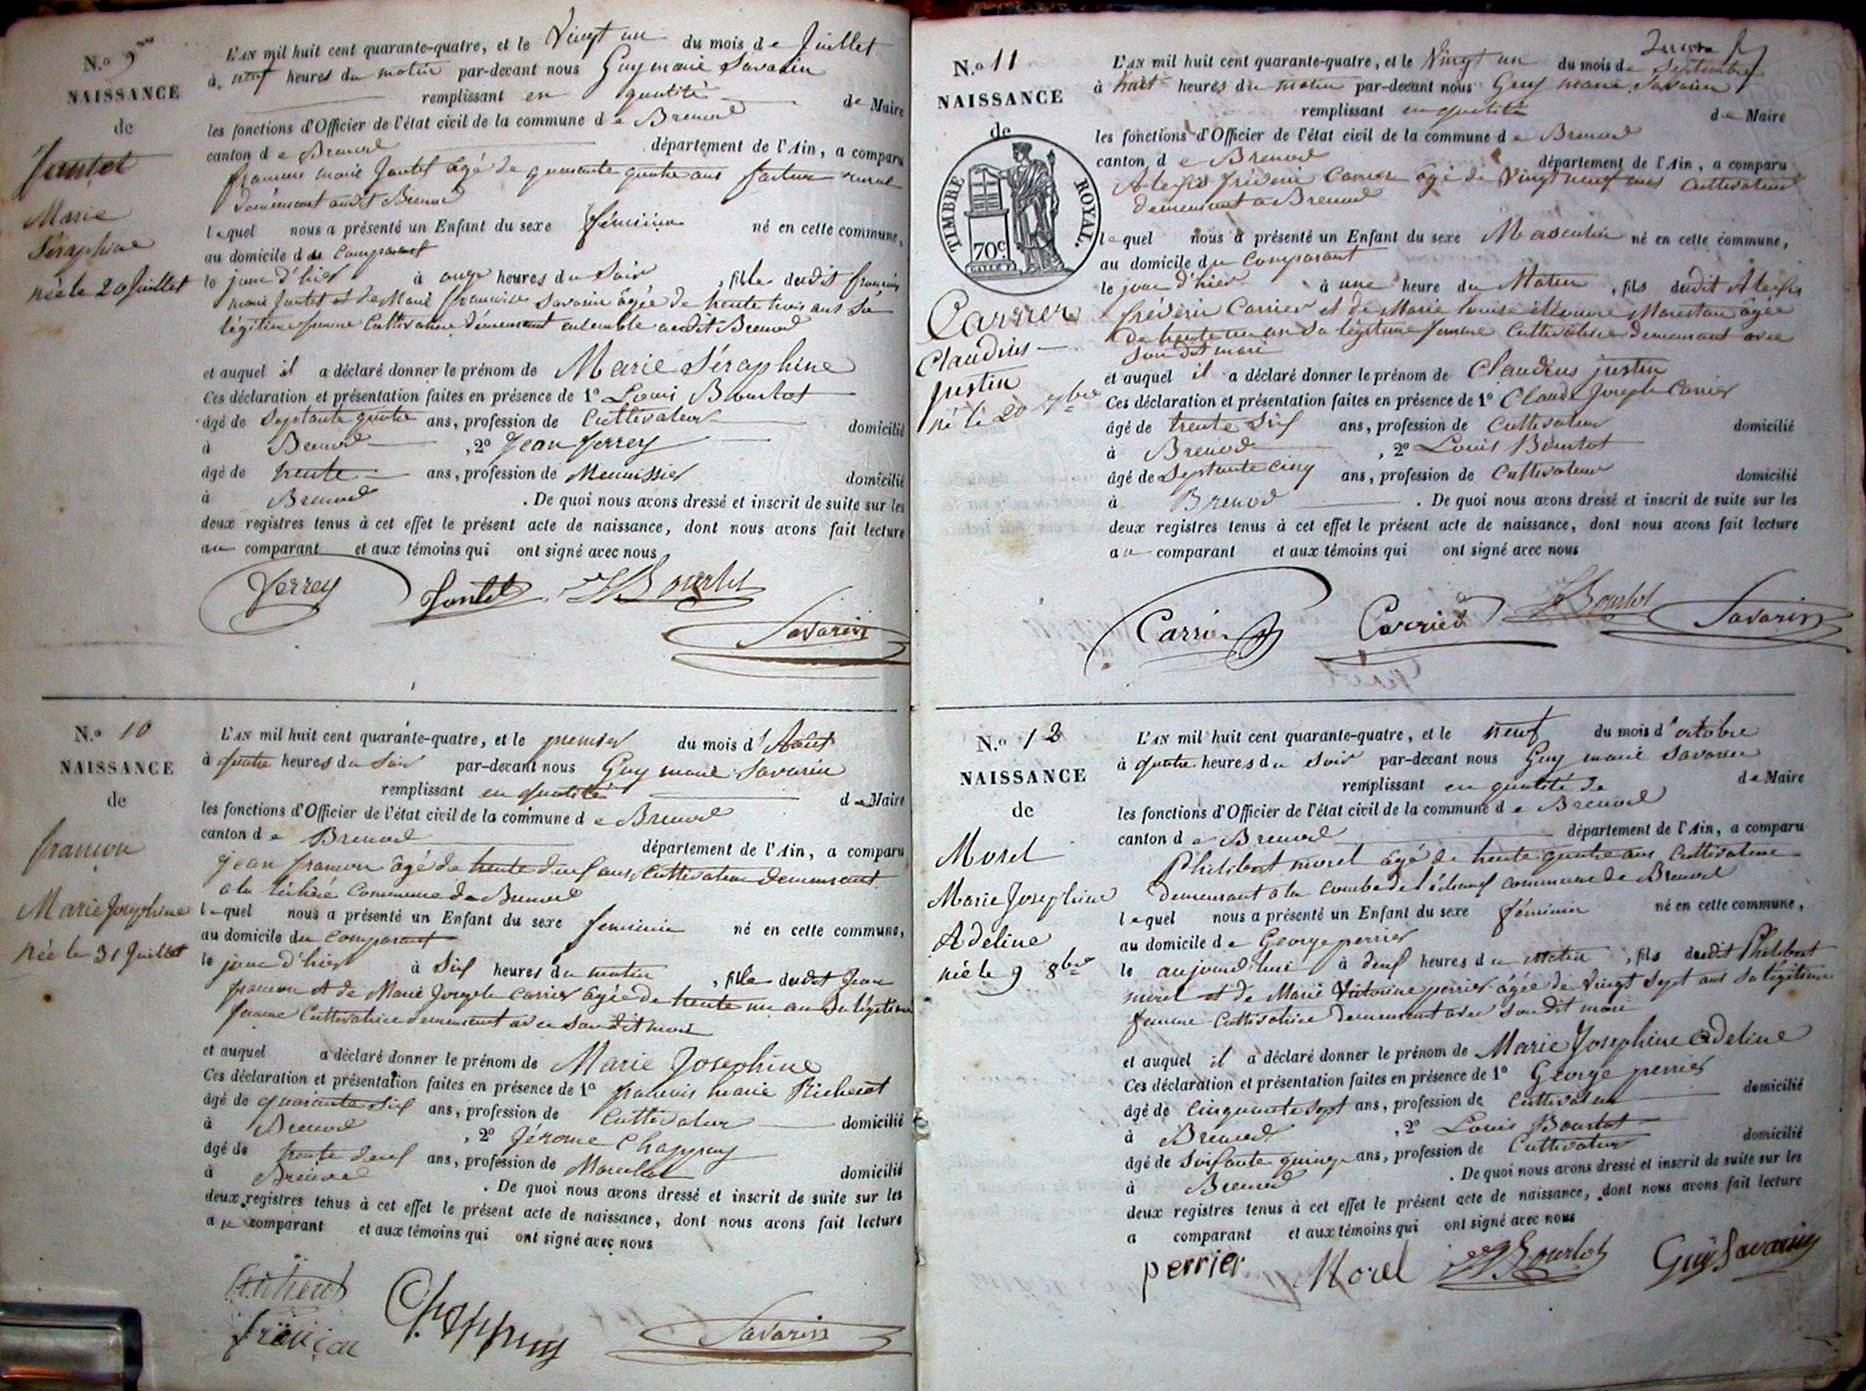 N.o 9
NAISSANCE
de
Jantet
Marie
Séraphine
née le 20 Juillet
L'AN mil huit cent quarante-quatre, et le Vingt un du mois de Juillet
à neuf heures du matin par-devant nous Guy marie Savarin
remplissant en qualité de Maire
les fonctions d'Officier de l'état civil de la commune de Brenod
canton de Brenod département de l'Ain, a comparu
francois marie Jantet âgé de quarante quatre ans facteur rural
demeurant audit Brenod
lequel nous a présenté un Enfant du sexe féminin né en cette commune,
au domicile du Comparant
le jour d'hier à onze heures du Soir, fille dudit francois
marie Jantet et de Marie francoise Savarin âgée de trente trois ans Sa
légitime femme Cultivatrice demeurant ensemble audit Brenod
et auquel il a déclaré donner le prénom de Marie Séraphine
Ces déclaration et présentation faites en présence de 1º Louis Bourtot
âgé de Septante quatre ans, profession de Cultivateur domicilié
à Brenod, 2º Jean Ferrey
âgé de trente ans, profession de Menuisier domicilié
à Brenod. De quoi nous avons dressé et inscrit de suite sur les
deux registres tenus à cet effet le présent acte de naissance, dont nous avons fait lecture
au comparant et aux témoins qui ont signé avec nous
Ferrey Jantet Bourtot
Savarin
N.o 10
NAISSANCE
de
francon
Marie Josephine
née le 31 Juillet
L'AN mil huit cent quarante-quatre, et le premier du mois d'Août
à quatre heures du Soir par-devant nous Guy marie Savarin
remplissant en qualité de Maire
les fonctions d'Officier de l'état civil de la commune de Brenod
canton de Brenod département de l'Ain, a comparu
jean francon âgé de trente deux ans, Cultivateur demeurant
a la Commune de Brenod
lequel nous a présenté un Enfant du sexe feminin né en cette commune,
au domicile du Comparant
le jour d'hier à Six heures du matin, fille dudit Jean
francon et de Marie Josephe Carrier âgée de trente un an Sa légitime
femme Cultivatrice demeurant avec Son dit mari
et auquel a déclaré donner le prénom de Marie Josephine
Ces déclaration et présentation faites en présence de 1º francois marie Richerot
âgé de quarante six ans, profession de Cultivateur domicilié
à Brenod, 2º Jérome Chappuy
âgé de trente deux ans, profession de domicilié
à Brenod. De quoi nous avons dressé et inscrit de suite sur les
deux registres tenus à cet effet le présent acte de naissance, dont nous avons fait lecture
au comparant et aux témoins qui ont signé avec nous
francon Chappuy Savarin
N.o 11
NAISSANCE
de
TIMBRE ROYAL.
70c
Carrier
Claudius
justin
né le 20 7bre
L'AN mil huit cent quarante-quatre, et le Vingt un du mois de Septembre
à huit heures du matin par-devant nous Guy marie Savarin
remplissant en qualité de Maire
les fonctions d'Officier de l'état civil de la commune de Brenod
canton de Brenod département de l'Ain, a comparu
Alexis fréderic Carrier âgé de Vingt neuf ans Cultivateur
demeurant a Brenod
lequel nous a présenté un Enfant du sexe Masculin né en cette commune,
au domicile du Comparant
le jour d'hier à une heure du Matin, fils dudit Alexis
fréderic Carrier et de Marie louise éléonore âgée
de trente un an Sa légitime femme Cultivatrice demeurant avec
Son dit mari
et auquel il a déclaré donner le prénom de Claudius justin
Ces déclaration et présentation faites en présence de 1º Claude Joseph Carrier
âgé de trente Six ans, profession de Cultivateur domicilié
à Brenod, 2º Louis Bourtot
âgé de Septante cinq ans, profession de Cultivateur domicilié
à Brenod. De quoi nous avons dressé et inscrit de suite sur les
deux registres tenus à cet effet le présent acte de naissance, dont nous avons fait lecture
au comparant et aux témoins qui ont signé avec nous
Carrier Carrier Bourtot Savarin
N.o 12
NAISSANCE
de
Morel
Marie Josephine
Adeline
née le 9 8bre
L'AN mil huit cent quarante-quatre, et le neuf du mois d'octobre
à quatre heures du Soir par-devant nous Guy marie Savarin
remplissant en qualité de de Maire
les fonctions d'Officier de l'état civil de la commune de Brenod
canton de Brenod département de l'Ain, a comparu
Philibert morel âgé de trente quatre ans Cultivateur
demeurant a la combe de commune de Brenod
lequel nous a présenté un Enfant du sexe féminin né en cette commune,
au domicile de George perrier
le aujourd'hui à deux heures du matin, fils dudit Philibert
morel et de Marie Victorine perrier âgée de Vingt Sept ans Sa légitime
femme Cultivatrice demeurant avec Son dit mari
et auquel il a déclaré donner le prénom de Marie Josephine Adeline
Ces déclaration et présentation faites en présence de 1º George perrier
âgé de Cinquante Sept ans, profession de Cultivateur domicilié
à Brenod, 2º Louis Bourtot
âgé de Soixante quinze ans, profession de Cultivateur domicilié
à Brenod. De quoi nous avons dressé et inscrit de suite sur les
deux registres tenus à cet effet le présent acte de naissance, dont nous avons fait lecture
a comparant et aux témoins qui ont signé avec nous
perrier Morel Bourtot Guy Savarin